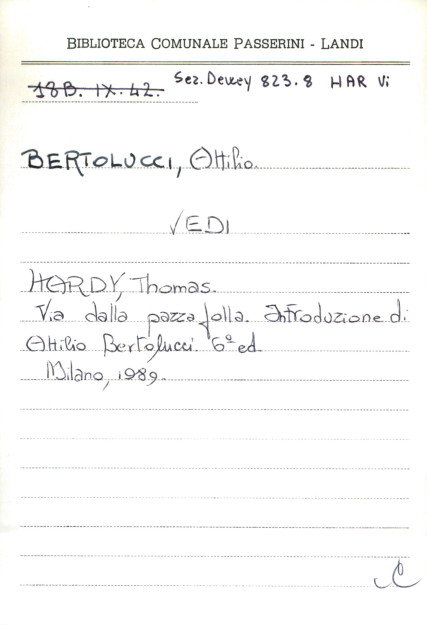 BIBLIOTECA COMUNALE PASSERINI - LANDI
18B. IX. 42. Sez. Dewey 823.8 HAR Vi
BERTOLUCCI, Attilio.
VEDI
HARDY, Thomas.
Via dalla pazza folla. Introduzione di
Attilio Bertolucci. 6ª ed.
Milano, 1989.